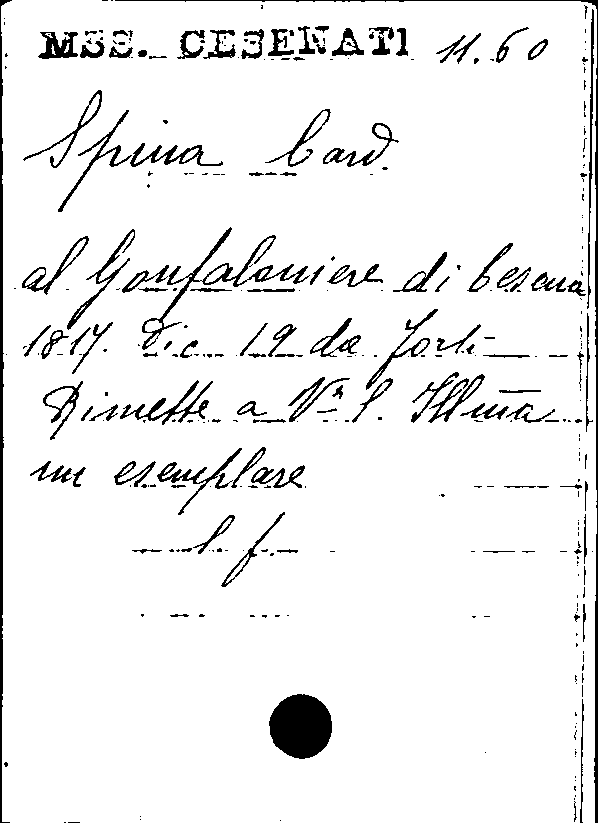 MSS. CESENATI 11.60
Spina Card.
al Gonfaloniere di Cesena
1817. Dic. 19 da Forlì
Rimette a Vª S. Illm̃a
un esemplare
l. f.